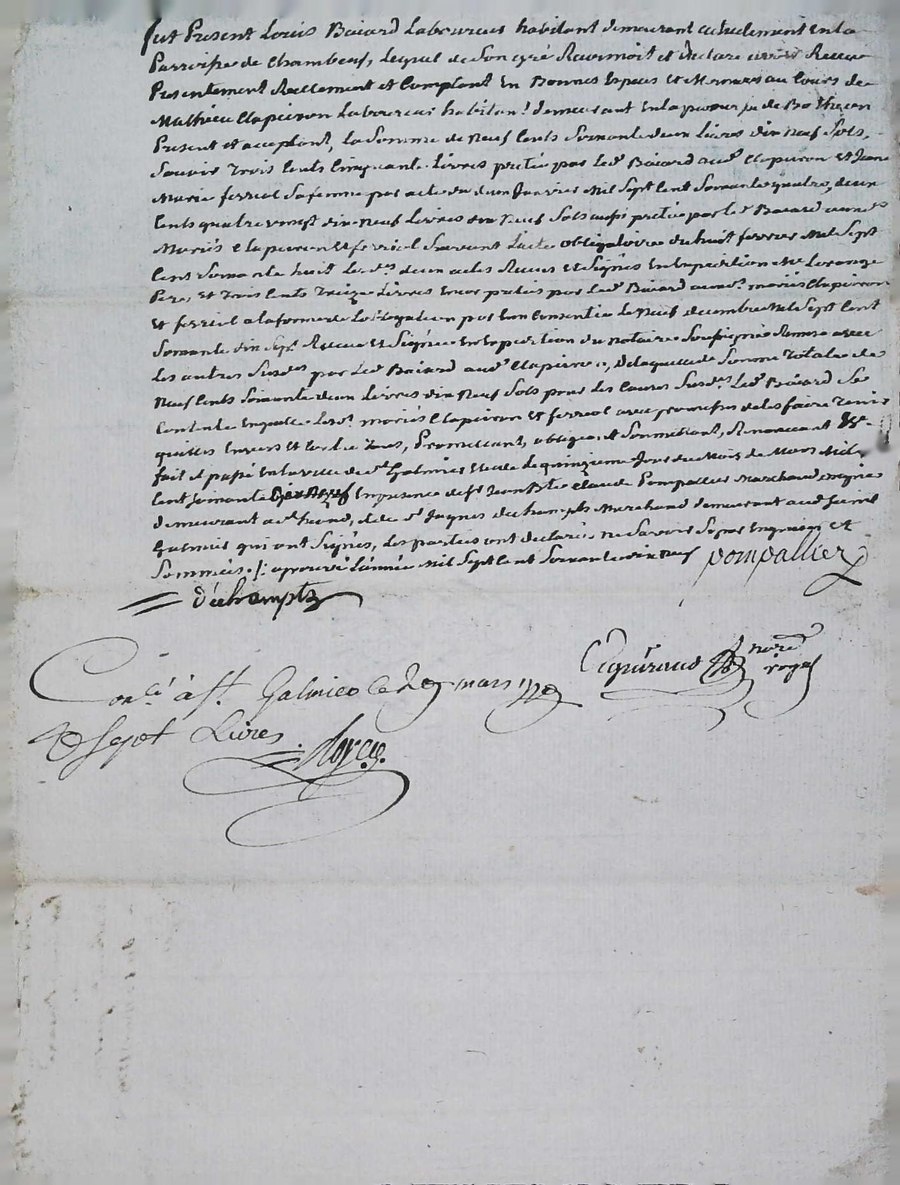 fut Present Louis Baiard Laboureur habitant demeurant actuelement En la
Parroisse de Chambeuf, Lequel de Son gré Reconnoit et declare avoir Receu
Presentement Reellement et Comptant En Bonnes Especes et Monnoes au Cours de
Mathieu Clapeiron Laboureur habitant demeurant En la paroisse de Bothéon
Present et acceptant, la Somme de Neuf Cents Soixante deux Livres dix Neuf Sols,
Savoir Trois Cents Cinquante Livres pretée par led. Baiard aud. Clapeiron Et Jeanne
Marie ferriol Sa femme par acte du deux Janvier Mil Sept Cent Soixante quatre, deux
Cents quatre vingt dix Neuf Livres dix Neuf Sols aussi pretée par led. Baiard auxd.
Mariés Clapeiron Et ferriol Suivant l'acte obligatoire du huit fevrier Mil Sept
Cent Soixante huit Lesd. deux actes Receus Et Signés En Expedition Me
Pere, et Trois Cents Treize Livres Encor pretés par led. Baiard auxd. mariés Clapeiron
Et ferriol a la forme de L'obligation par Eux Consentie Le Neuf decembre Mil Sept Cent
Soixante dix Sept Receue Et Signée En Expedition du notaire Soussigné Remise avec
Les autres Susd. par led. Baiard aud. Clapeiron, de laquelle Somme Totale de
Neuf Cents Soixante deux Livres dix Neuf Sols pour les Causes Susd. Led. Baiard Se
Contente En quitte Lesd. mariés Clapeiron Et ferriol avec promesse de les faire Tenir
quittes Envers et Contre Tous, Promettant, obligeant Soumettant, Renonceant &c.
fait et passé En la ville de St. Galmier Le quinzieme Jour du Mois de Mars Mil
Cent Soixante dix Neuf En presence de Sr. Jean Bte. Claude Pompallier Marchand
demeurant & de Sr. Jaques dechampts Marchand demeurant aud. Saint
Galmier qui ont Signés, Les parties ont declarés ne Savoir Signer Enquises et
Sommées. /: aprouvé L'année Mil Sept Cent Soixante dix Neuf pompallier
dechampts
not.re
royal
Con.lé à St. Galmier Ce 29 mars 1779
R Sept Livres.